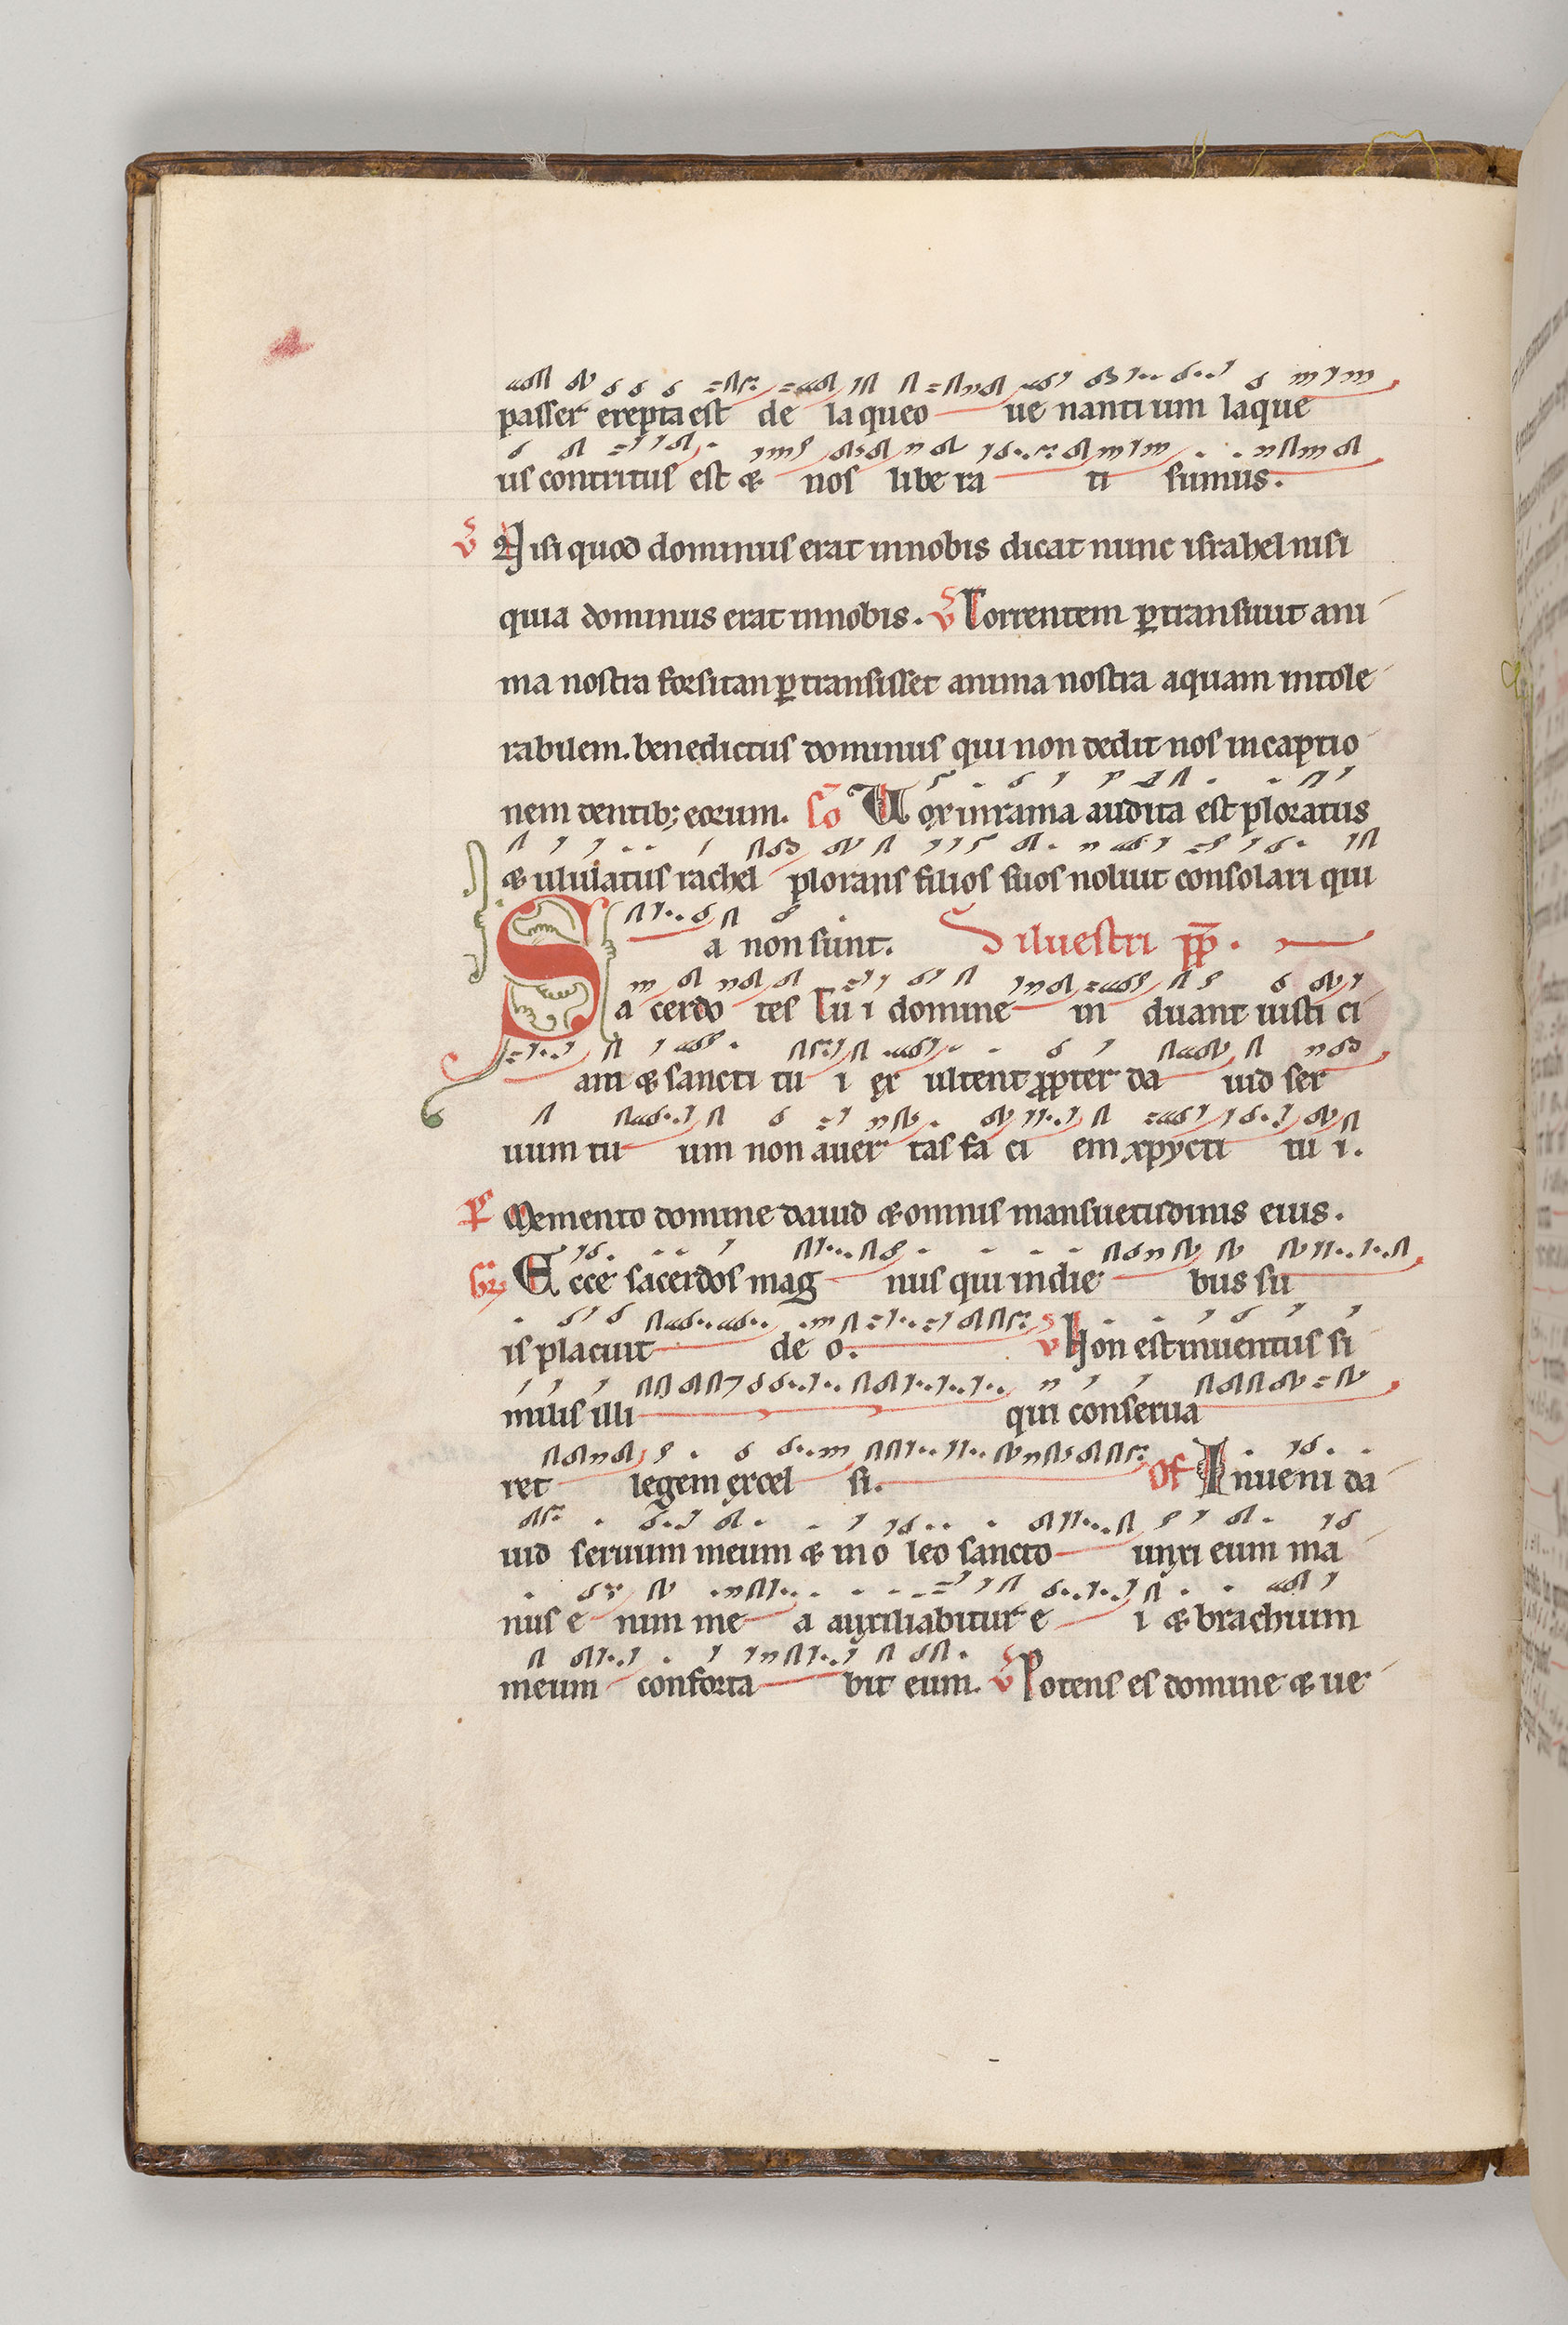 passer erepta est de laqueo ue nantium laque
us contritus est & nos libe ra ti sumus.
v̄ Nisi quod dominus erat innobis dicat nunc israhel nisi
quia dominus erat innobis. v̄ Torrentem ꝑtransiuit ani
ma nostra forsitan ꝑtransisset anima nostra aquam intole
rabilem. benedictus dominus qui non dedit nos incaptio
nem dentib; eorum. c̄o Uox inrama audita est ploratus
& ululatus rachel plorans filios suos noluit consolari qui
a non sunt. Siluestri pp̄.
Sa cerdo tes tu i domine in duant iusti ci
am & sancti tu i ex ultent ꝓpter da uid ser
uum tu um non auer tas fa ci em xpycti tu i.
p̄s Memento domine dauid & omnis mansuetudinis eius.
Ecce sacerdos mag nus qui indie bus su
is placuit de o. v̄ Non est inuentus si
milis illi qui conserua
ret legem excel si. Of Inueni da
uid seruum meum & in o leo sancto unxi eum ma
nus e nim me a auxiliabitur e i & brachium
meum conforta bit eum. v̄ Potens es domine & ue